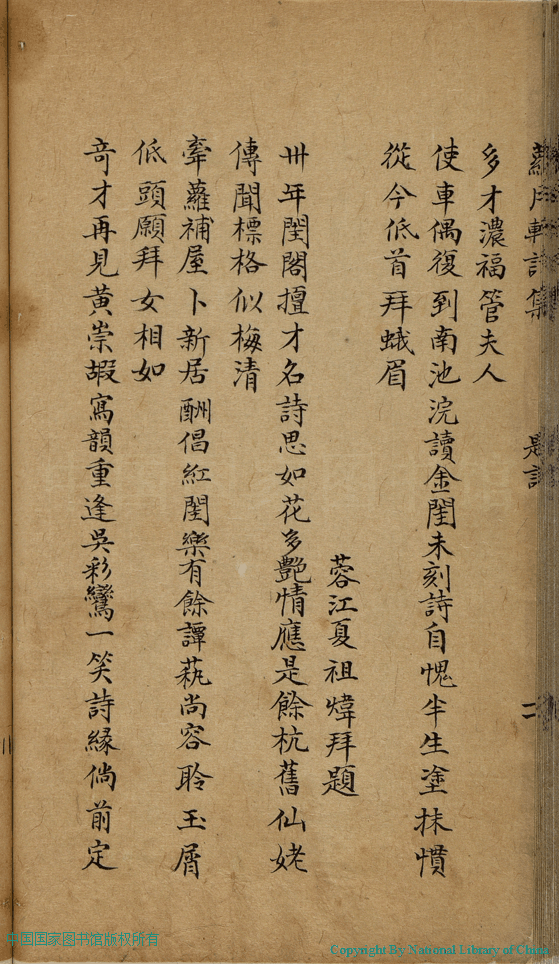 蘿月軒詩集 是詩 二
多才濃福管夫人
使車偶復到南池浣讀金閨未刻詩自愧半生塗抹慣
從今低首拜蛾眉
蓉江夏祖煒拜題
卌年閨閣擅才名詩思如花多艷情應是餘杭舊仙姥
傳聞標格似梅清
牽蘿補屋卜新居酬倡紅閨樂有餘譚藝尚容聆玉屑
低頭願拜女相如
奇才再見黃崇嘏寫韻重逢吳彩鸞一笑詩緣倘前定
中国国家图书馆版权所有
Copyright By National Library of China